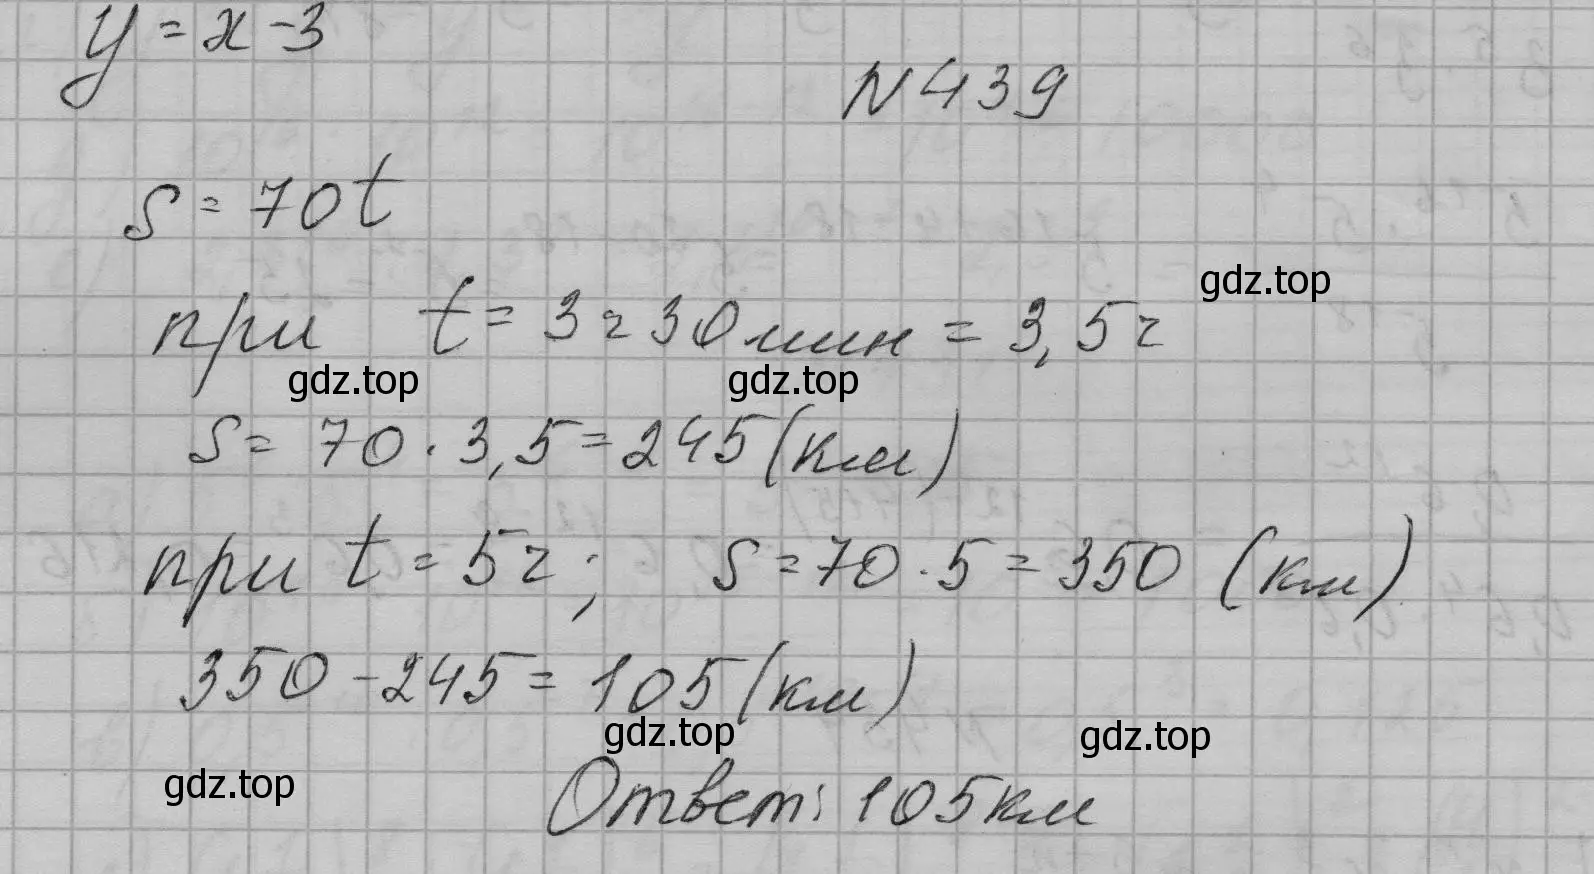 y = x - 3
N 439
s = 70t
gdz.top
при t = 3ч 30мин = 3,5ч
gdz.top gdz.top
s = 70 · 3,5 = 245 (км)
при t = 5ч; s = 70 · 5 = 350 (км)
350 - 245 = 105 (км)
gdz.top gdz.top
gdz.top
Ответ: 105км